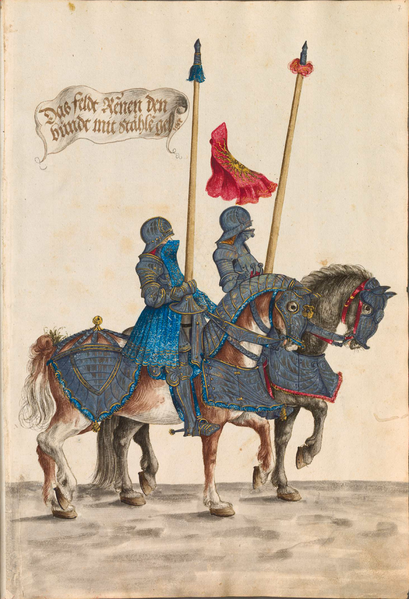 Das feldt Rēnen den
bundt mit stähle ge